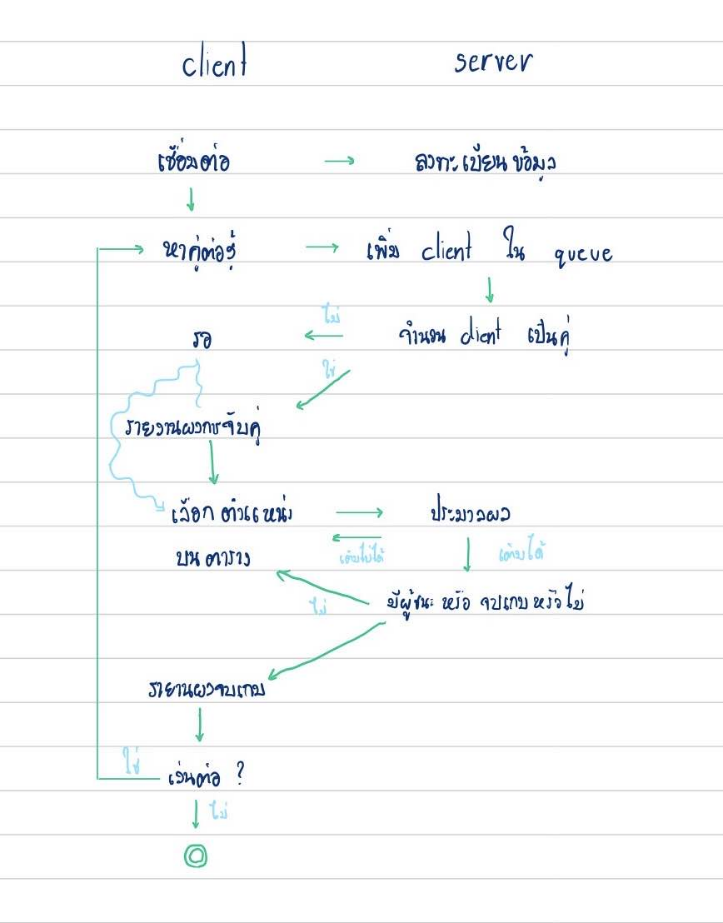 client server
เชื่อมต่อ ลงทะเบียน ข้อมูล
หาคู่ต่อสู้ เพิ่ม client ใน queue
ไม่
รอ จำนวน client เป็นคู่
ใช่
รายงานผลการจับคู่
เลือก ตำแหน่ง ประมวลผล
บน ตาราง เดินไม่ได้ เดินได้
ไม่ มีผู้ชนะ หรือ จบเกม หรือไม่
รายงานผลจบเกม
ใช่ เล่นต่อ ?
ไม่